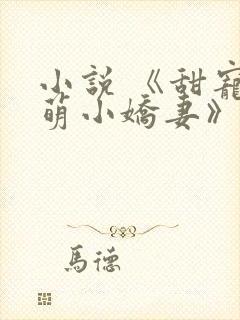 小說《甜寵
萌小嬌妻》
馬德